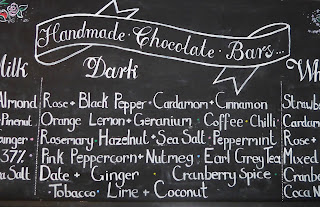 Handmade · Chocolate · Bars...
Milk Dark Wh
Almond Rose + Black Pepper · Cardamom + Cinnamon Strawb
Pinenut Orange Lemon + Geranium · Coffee · Chilli Carda
Rosemary · Hazelnut + Sea Salt · Peppermint Rose +
37% Pink Peppercorn + Nutmeg · Earl Grey Tea Mixed
Sea Salt Date + Ginger · Cranberry Spice · Cranb
Tobacco · Lime + Coconut Coco